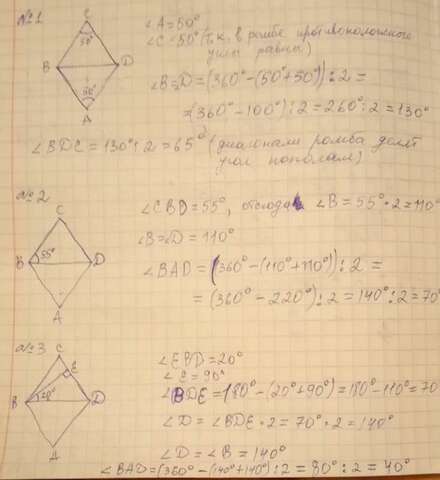 №1
C
50°
B
D
50°
A
∠A=50°
∠C=50° (т.к. в ромбе противоположного
углы равны)
∠B=∠D=(360°-(50°+50°)):2=
=(360°-100°):2=260°:2=130°
∠BDC=130°:2=65° (диагонали ромба делят
угол пополам)
№2
C
B
55°
D
A
∠CBD=55°, отсюда ∠B=55°·2=110°
∠B=∠D=110°
∠BAD=(360°-(110°+110°)):2=
=(360°-220°):2=140°:2=70°
№3
C
E
B
20°
D
A
∠EBD=20°
∠E=90°
∠BDE=180°-(20°+90°)=180°-110°=70°
∠D=∠BDE·2=70°·2=140°
∠D=∠B=140°
∠BAD=(360°-(140°+140°)):2=80°:2=40°